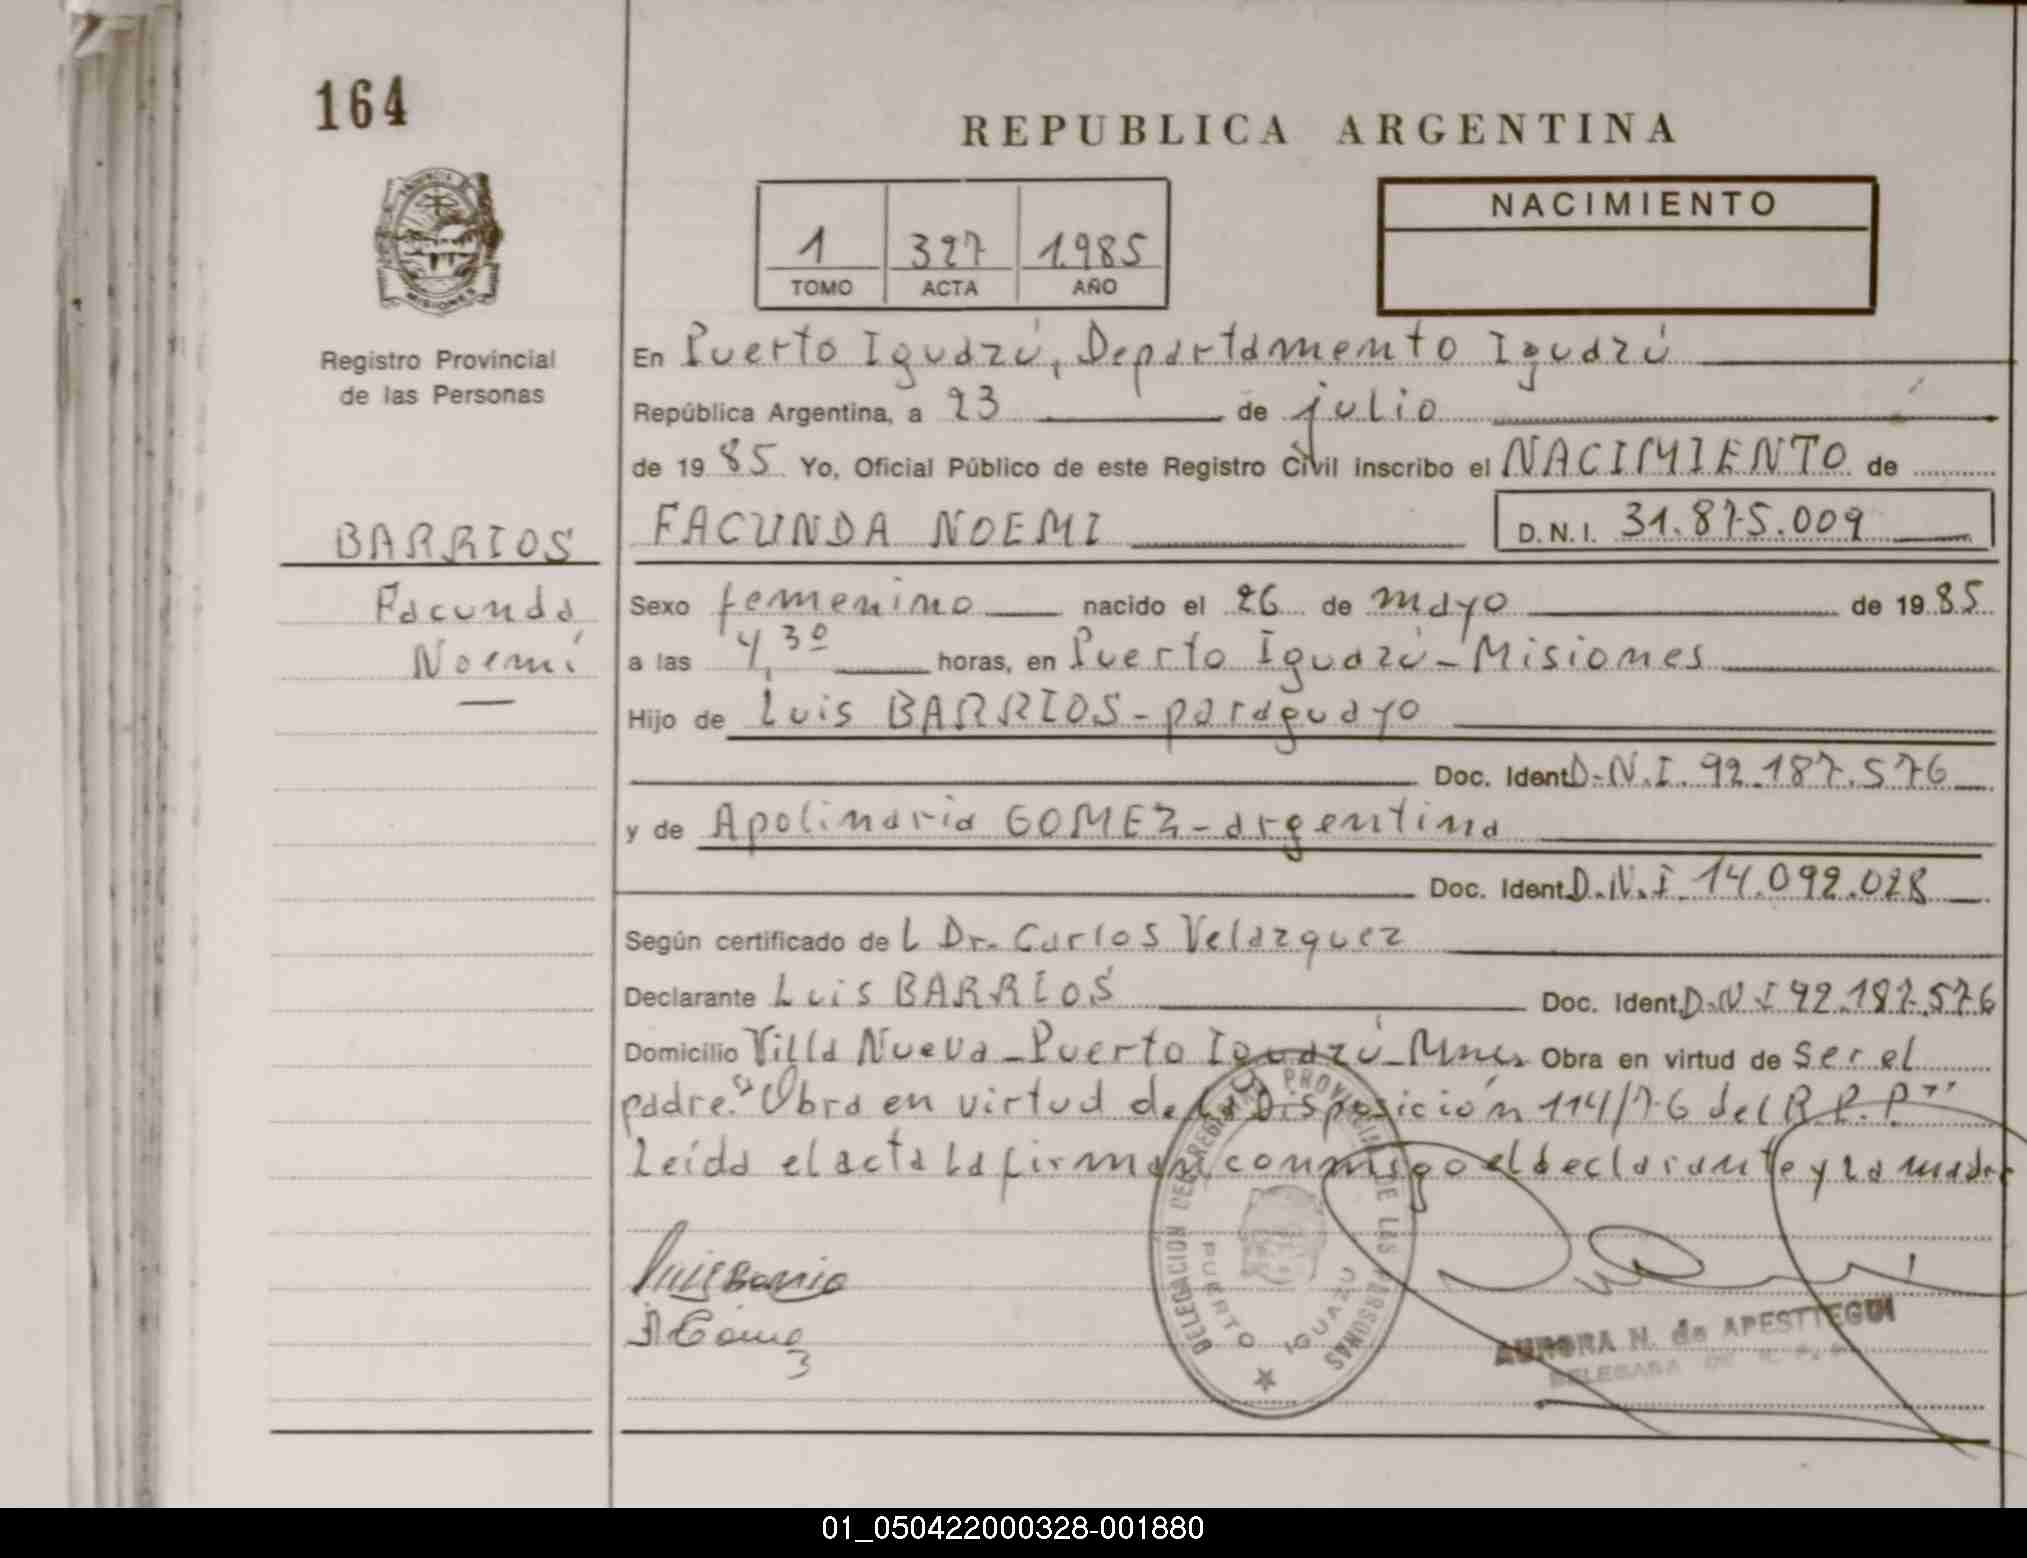 164
REPUBLICA ARGENTINA
1 327 1.985
TOMO ACTA AÑO
NACIMIENTO
MISIONES
Registro Provincial
de las Personas
BARRIOS
Facunda
Noemí
En Puerto Iguazú, Departamento Iguazú
República Argentina, a 23 de julio
de 19 85 Yo, Oficial Público de este Registro Civil inscribo el NACIMIENTO de
FACUNDA NOEMI D.N.I. 31.875.009
Sexo femenino nacido el 26 de mayo de 19 85
a las 4,30 horas, en Puerto Iguazú - Misiones
Hijo de Luis BARRIOS - paraguayo
Doc. Ident. D.N.I. 92.187.576
y de Apolinaria GOMEZ - argentina
Doc. Ident. D.N.I. 14.092.028
Según certificado de L Dr. Carlos Velazquez
Declarante Luis BARRIOS Doc. Ident. D.N.I 92.187.576
Domicilio Villa Nueva - Puerto Iguazú - Mnes Obra en virtud de ser el
padre. "Obra en virtud de la Disposición 114/76 del R.P.P"
Leída el acta la firman conmigo el declarante y la madre
Luis Barrio
A Gomez
DELEGACION DEL REGISTRO PROVINCIAL DE LAS PERSONAS
PUERTO IGUAZU
AURORA N. de APESTTEGUI
DELEGADA DE R. P. P.
01_050422000328-001880